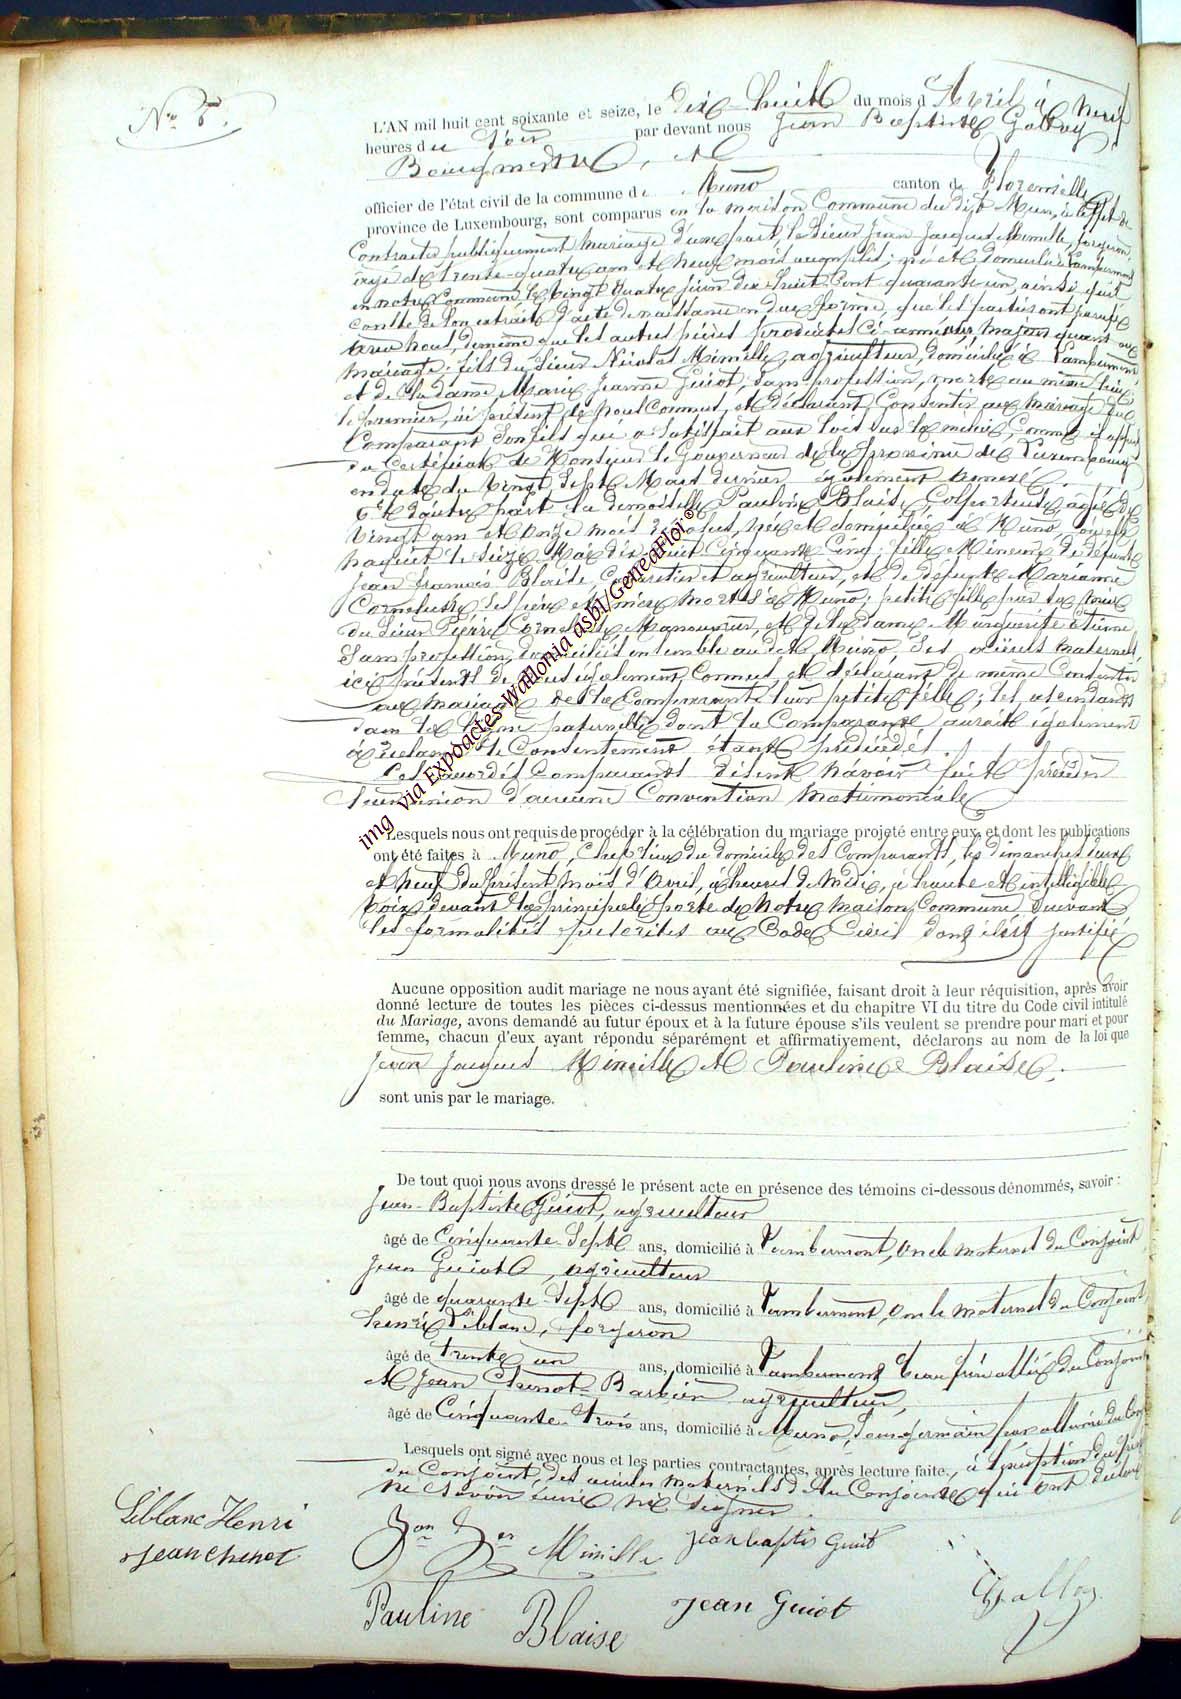 N° 8.
L'AN mil huit cent soixante et seize, le dix-huit du mois d'Avril à neuf
heures du soir par devant nous Jean Baptiste Galloy
Bourgmestre, et
officier de l'état civil de la commune de Muno canton de Florenville
province de Luxembourg, sont comparus en la maison Commune du dit Muno, à l'effet de
Contracter publiquement mariage d'une part le Sieur Jean Jacques Mimille, forgeron,
âgé de trente-quatre ans et neuf mois accomplis; né et domicilié à Lambermont
en notre Commune, le vingt quatre juin dix huit Cent quarante un, ainsi qu'il
conste de son extrait d'acte de naissance en due forme, que les parties ont paraphé
avec nous, de même que les autres pièces produites ci-annexées, majeur quant au
mariage, fils du Sieur Nicolas Mimille, agriculteur, domicilié à Lambermont
et de la dame Marie Jeanne Guiot, sans profession, morte au même lieu;
le premier, ici présent, de nous Connu, et déclarant Consentir au mariage du
Comparant son fils qui a satisfait aux lois sur la milice, Comme il appert
du Certificat de Monsieur le Gouverneur de la province de Luxembourg
en date du vingt sept Mars dernier également annexé.
Et d'autre part la demoiselle Pauline Blaise, Colporteuse, âgée de
vingt ans et onze mois révolus, née et domiciliée à Muno, où elle
naquit le seize Mai dix huit Cinquante Cinq; fille Mineure de défunt
Jean François Blaise Cabaretier et agriculteur, et de défunte Marianne
Cornelusse, ses père et mère morts à Muno; petite fille par sa mère
du Sieur Pierre Cornelusse Manouvrier, et de la dame Marguerite Etienne
Sans profession, domiciliés ensemble au dit Muno, Ses aïeuls maternels,
ici présents de nous également Connus, et déclarant de même Consentir
au mariage de la Comparante leur petite fille; les ascendants
dans la ligne paternelle dont la Comparante aurait également
à réclamer le Consentement étant prédécédés.
Les accordés Comparants disent n'avoir fait précéder
leur union d'aucune Convention Matrimoniale
Lesquels nous ont requis de procéder à la célébration du mariage projeté entre eux, et dont les publications
ont été faites à Muno, Chef lieu du domicile des Comparants, les dimanches deux
et neuf du présent mois d'Avril, à heures de Midi, à haute et intelligible
voix devant la principale porte de notre maison Commune Suivant
les formalités prescrites au Code Civil dont il est justifié
Aucune opposition audit mariage ne nous ayant été signifiée, faisant droit à leur réquisition, après avoir
donné lecture de toutes les pièces ci-dessus mentionnées et du chapitre VI du titre du Code civil intitulé
du Mariage, avons demandé au futur époux et à la future épouse s'ils veulent se prendre pour mari et pour
femme, chacun d'eux ayant répondu séparément et affirmativement, déclarons au nom de la loi que
Jean Jacques Mimille et Pauline Blaise,
sont unis par le mariage.
De tout quoi nous avons dressé le présent acte en présence des témoins ci-dessous dénommés, savoir :
Jean-Baptiste Guiot, agriculteur
âgé de Cinquante Sept ans, domicilié à Lambermont, oncle maternel du Conjoint
Jean Guiot, agriculteur
âgé de quarante Sept ans, domicilié à Lambermont, oncle maternel du Conjoint,
Henri Leblanc, forgeron
âgé de trente un ans, domicilié à Lambermont beau frère allié du Conjoint
et Jean Chenot agriculteur,
âgé de Cinquante-trois ans, domicilié à Muno, germain par alliance du
Lesquels ont signé avec nous et les parties contractantes, après lecture faite, à l'exception du père
du Conjoint, des aïeuls maternels de la Conjointe qui ont déclaré
ne savoir écrire ni signer.
Leblanc Henri
Jean Chenot
Jean Jes Mimille
jean baptis Guiot
Pauline Blaise
Jean Guiot
Galloy
img via Expoactes-Wallonia asbl/GeneaFlor ©